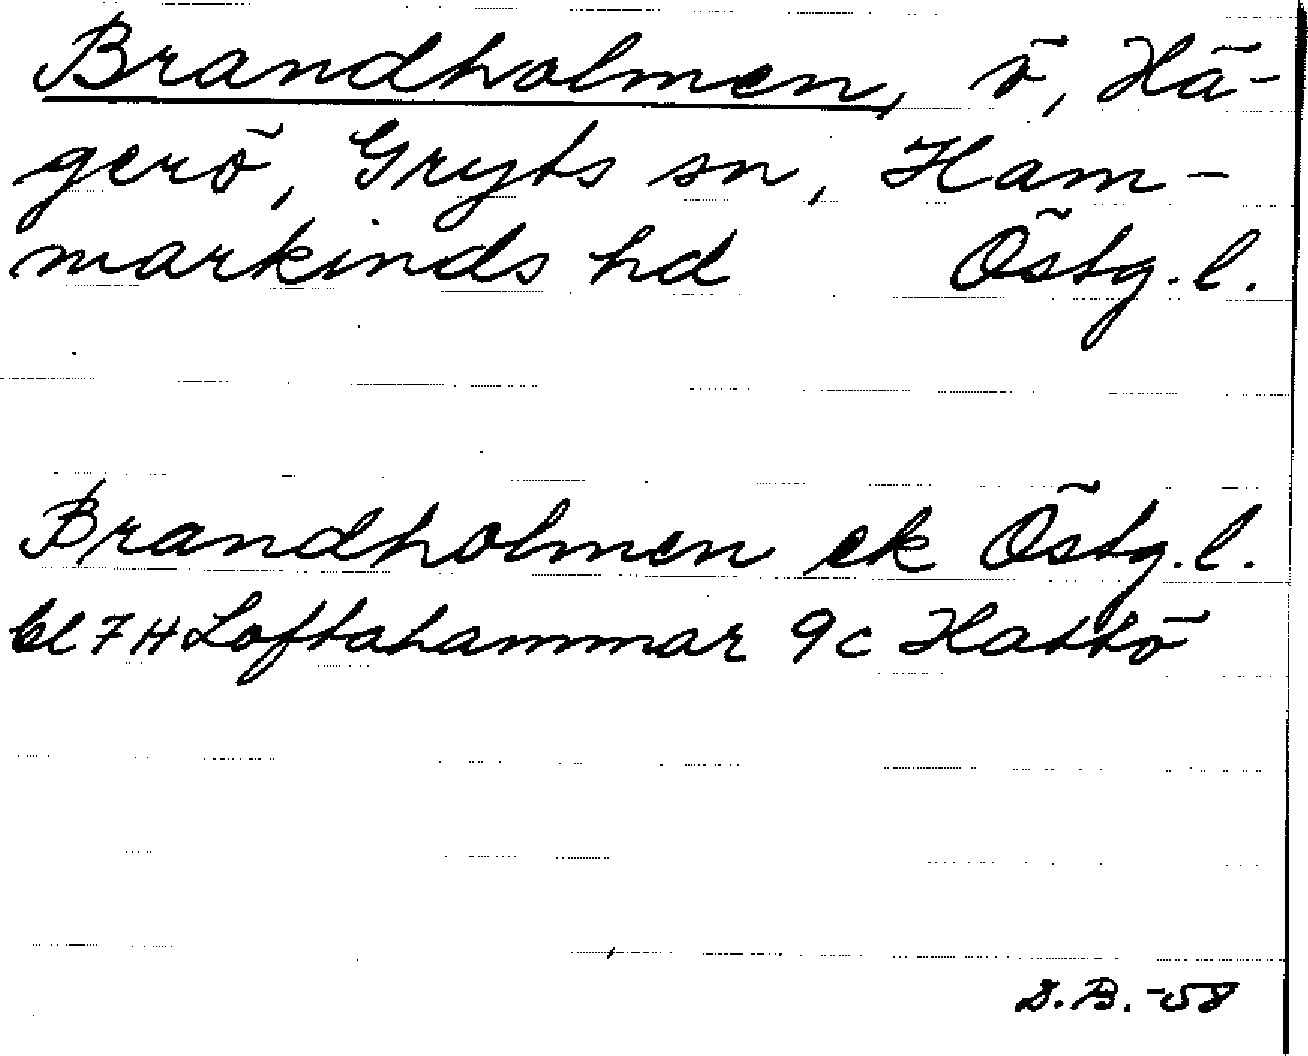 Brandholmen, ö, Hä-
gerö, Gryts sn, Ham-
markinds hd Östg. l.
Brandholmen ek Östg. l.
Bl 7 H Loftahammar 9c Hattö
D.B. -58